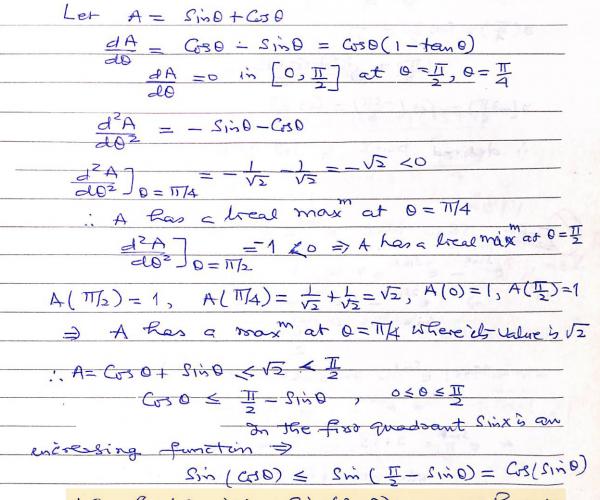 Let A = Sinθ + Cosθ
dA/dθ = Cosθ - Sinθ = Cosθ(1-tanθ)
dA/dθ = 0 in [0, π/2] at θ = π/2, θ = π/4
d²A/dθ² = - Sinθ - Cosθ
d²A/dθ²]θ = π/4 = - 1/√2 - 1/√2 = -√2 < 0
∴ A has a local maxᵐ at θ = π/4
d²A/dθ²]θ = π/2 = -1 < 0 ⇒ A has a local maxᵐ at θ = π/2
A(π/2) = 1, A(π/4) = 1/√2 + 1/√2 = √2, A(0) = 1, A(π/2) = 1
⇒ A has a maxᵐ at θ = π/4 where its value is √2
∴ A = Cosθ + Sinθ ≤ √2 < π/2
Cosθ ≤ π/2 - Sinθ , 0 ≤ θ ≤ π/2
In the first quadrant Sinx is an
increasing function ⇒
Sin (Cosθ) ≤ Sin (π/2 - Sinθ) = Cos(Sinθ)